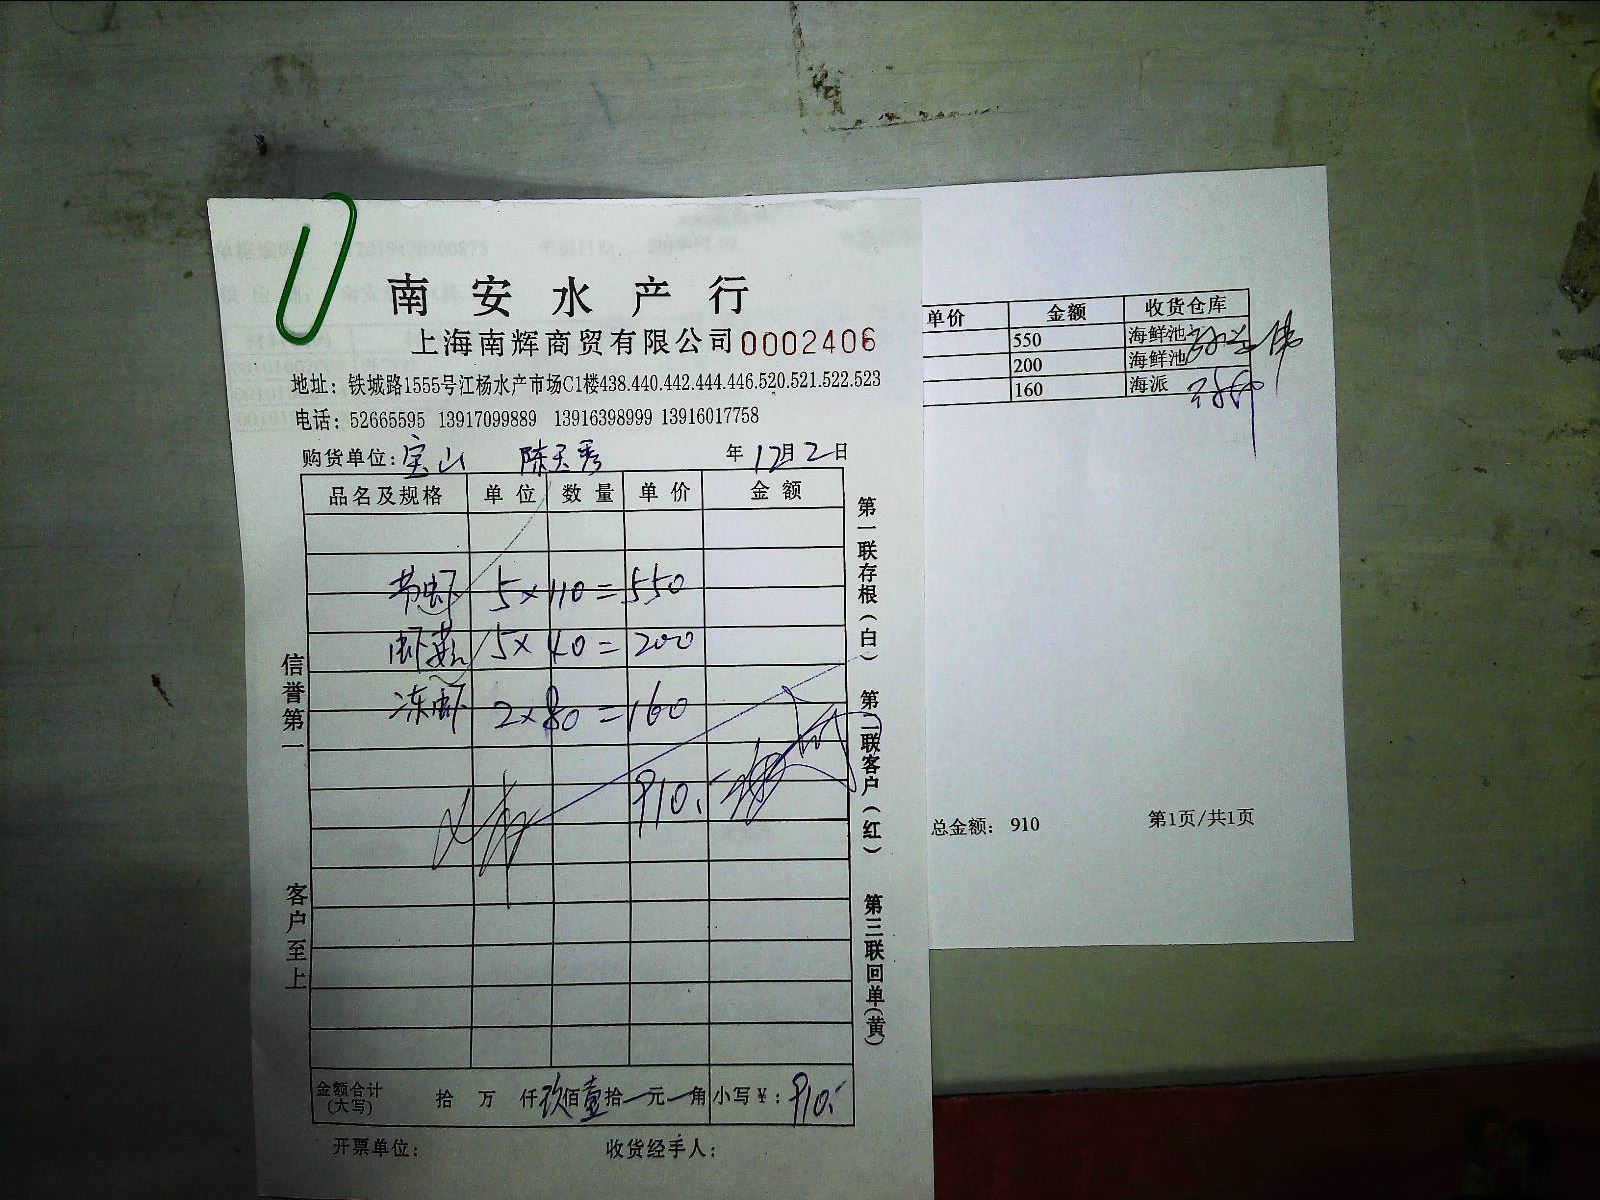 南安水产行
上海南辉商贸有限公司 0002406
地址：铁城路1555号江杨水产市场C1楼438.440.442.444.446.520.521.522.523
电话：52665595 13917099889 13916398999 13916017758
购货单位：宝山 陈天秀 年12月2日
品名及规格 单位 数量 单价 金额
节虾 5×110=550
虾菇 5×40=200
冻虾 2×80=160
910.-
金额合计(大写) 拾 万 仟玖佰壹拾一元一角 小写￥：910.-
开票单位： 收货经手人：
信誉第一
客户至上
第一联存根（白）
第二联客户（红）
第三联回单(黄)
单价 金额 收货仓库
550 海鲜池
200 海鲜池
160 海派
总金额： 910 第1页/共1页